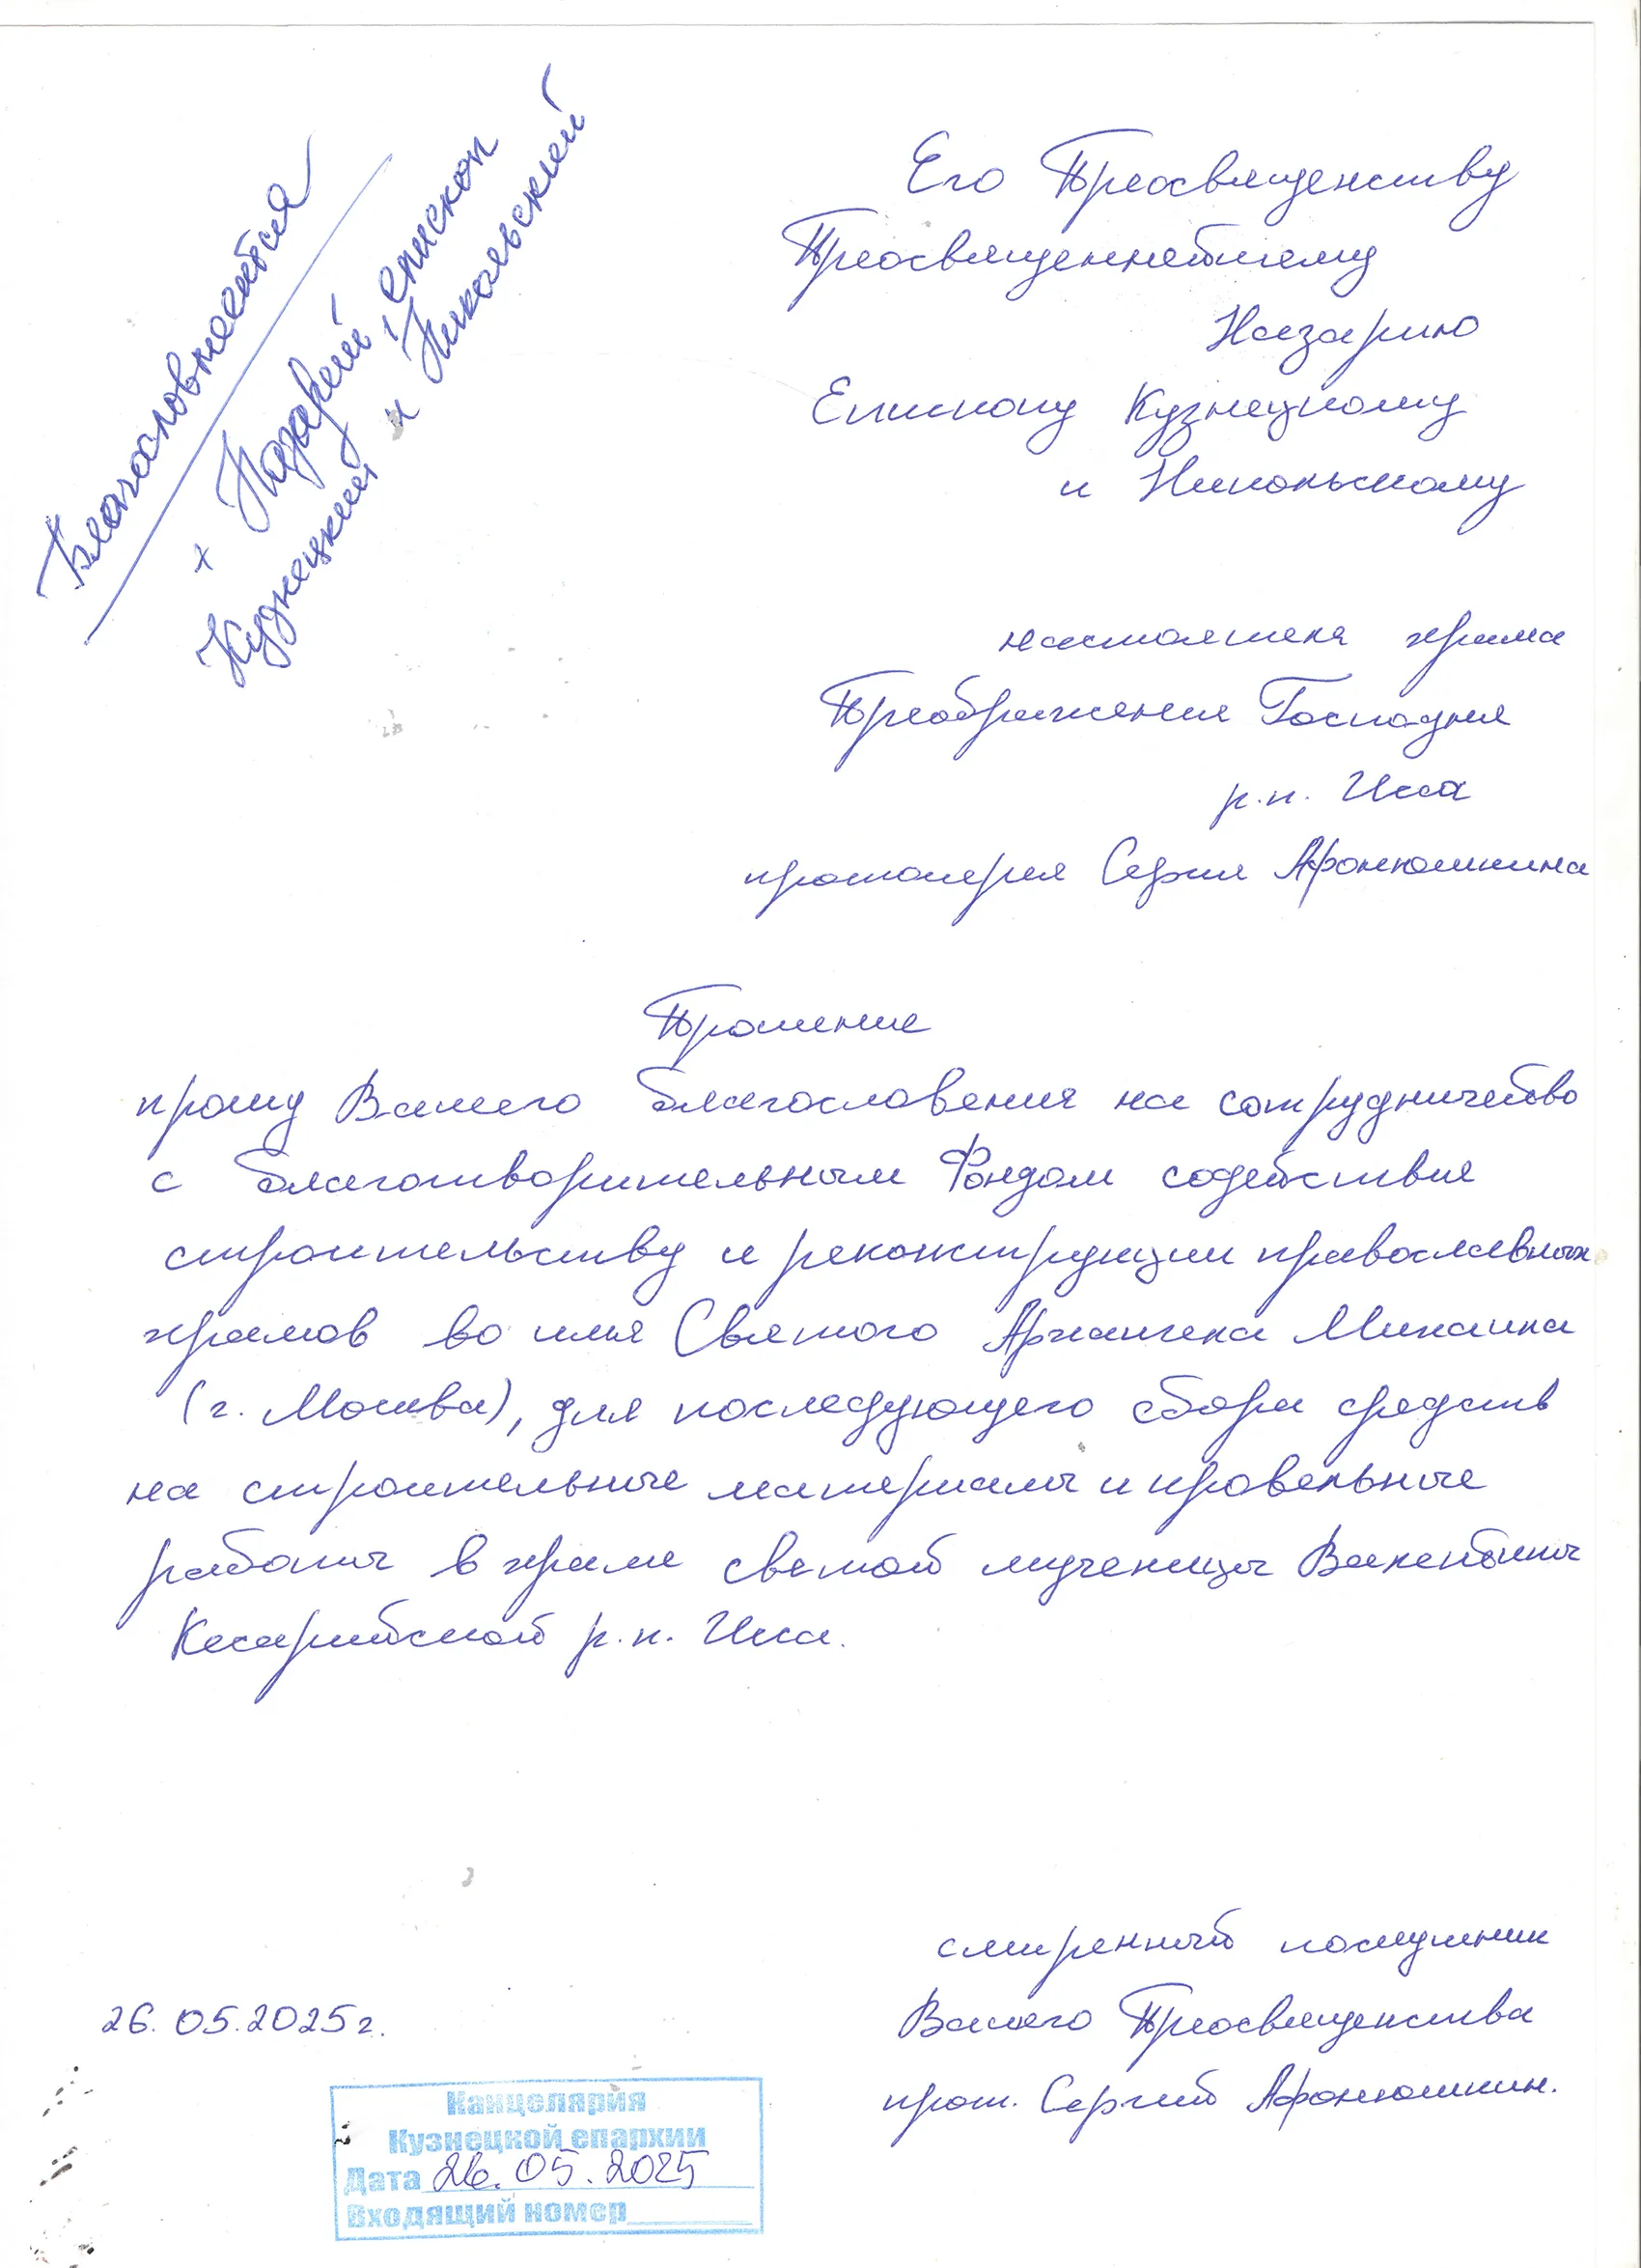 Благословляется
+ Назарий, епископ
Кузнецкий и Никольский
Его Преосвященству
Преосвященнейшему
Назарию
Епископу Кузнецкому
и Никольскому
настоятеля храма
Преображения Господня
р.п. Исса
протоиерея Сергия Афонюшкина
Прошение
прошу Вашего благословения на сотрудничество
с благотворительным Фондом содействия
строительству и реконструкции православных
храмов во имя Святого Архангела Михаила
(г. Москва), для последующего сбора средств
на строительные материалы и кровельные
работы в храме святой мученицы Валентины
Кесарийской р.п. Исса.
смиренный послушник
Вашего Преосвященства
прот. Сергий Афонюшкин.
26.05.2025г.
Канцелярия
Кузнецкой епархии
Дата 26.05.2025
Входящий номер